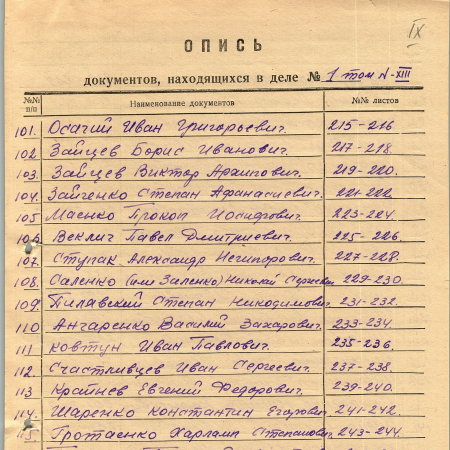 IX
ОПИСЬ
документов, находящихся в деле № 1 том N-XIII
№№ п/п Наименование документов №№ листов
101. Осачий Иван Григорьевич. 215-216
102 Зайцев Борис Иванович. 217-218
103. Зайцев Виктор 219-220.
104. Зайченко Степан Афанасиевич. 221-222
105 Масенко Прокоп Иосифович. 223-224.
106. Веклич Павел Дмитриевич. 225-226.
107. Ступак Александр Нечипорович. 227-228.
108. Саленко (или Заленко) Николай Сергеевич 229-230.
109. Пилавский Степан Никодимович. 231-232.
110 Ангаренко Василий Захарович. 233-234.
111 Ковтун Иван Павлович. 235-236.
112 Счастливцев Иван Сергеевич. 237-238.
113 Крайнев Евгений Федорович. 239-240.
114. Шаренко Константин Егорович. 241-242.
115. Харламп Степанович. 243-244.